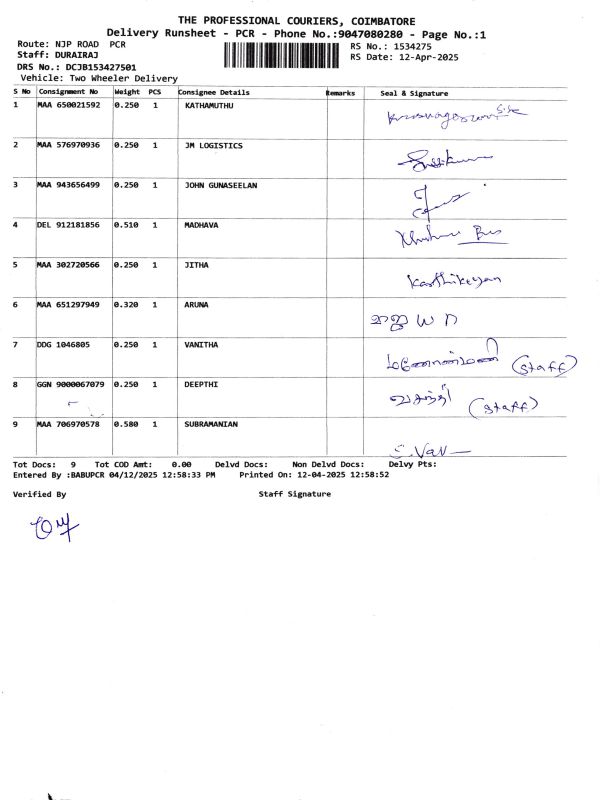 THE PROFESSIONAL COURIERS, COIMBATORE
Delivery Runsheet - PCR - Phone No.:9047080280 - Page No.:1
Route: NJP ROAD PCR
RS No.: 1534275
Staff: DURAIRAJ
RS Date: 12-Apr-2025
DRS No.: DCJB153427501
Vehicle: Two Wheeler Delivery
S No Consignment No Weight PCS Consignee Details Remarks Seal & Signature
1 MAA 650021592 0.250 1 KATHAMUTHU
2 MAA 576970936 0.250 1 JM LOGISTICS
3 MAA 943656499 0.250 1 JOHN GUNASEELAN
4 DEL 912181856 0.510 1 MADHAVA
5 MAA 302720566 0.250 1 JITHA Karthikeyan
6 MAA 651297949 0.320 1 ARUNA
7 DDG 1046805 0.250 1 VANITHA (staff)
8 GGN 9000067079 0.250 1 DEEPTHI (staff)
9 MAA 706970578 0.580 1 SUBRAMANIAN
Tot Docs: 9 Tot COD Amt: 0.00 Delvd Docs: Non Delvd Docs: Delvy Pts:
Entered By :BABUPCR 04/12/2025 12:58:33 PM Printed On: 12-04-2025 12:58:52
Verified By Staff Signature